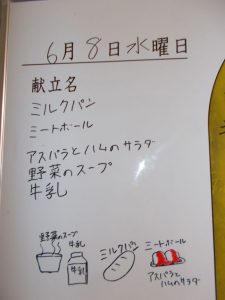 6月8日水曜日
献立名
ミルクパン
ミートボール
アスパラとハムのサラダ
野菜のスープ
牛乳
野菜のスープ
牛乳
牛乳
ミルクパン
ミートボール
アスパラと
ハムのサラダ